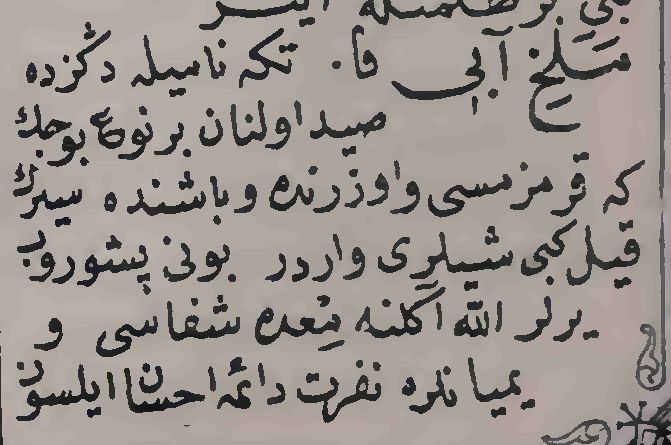 مسلخ آبی فا. تكه نامیله دڭزده
صید اولنان بر نوع بوجك
كه قرمزمسی و اوزرنده و باشنده سیرك
قیل كبی شیلری واردر بونی پشوروب
یرلر الله آكلنه معده شفاسی و
یمیانلره نفرت دائمه احسان ایلسون